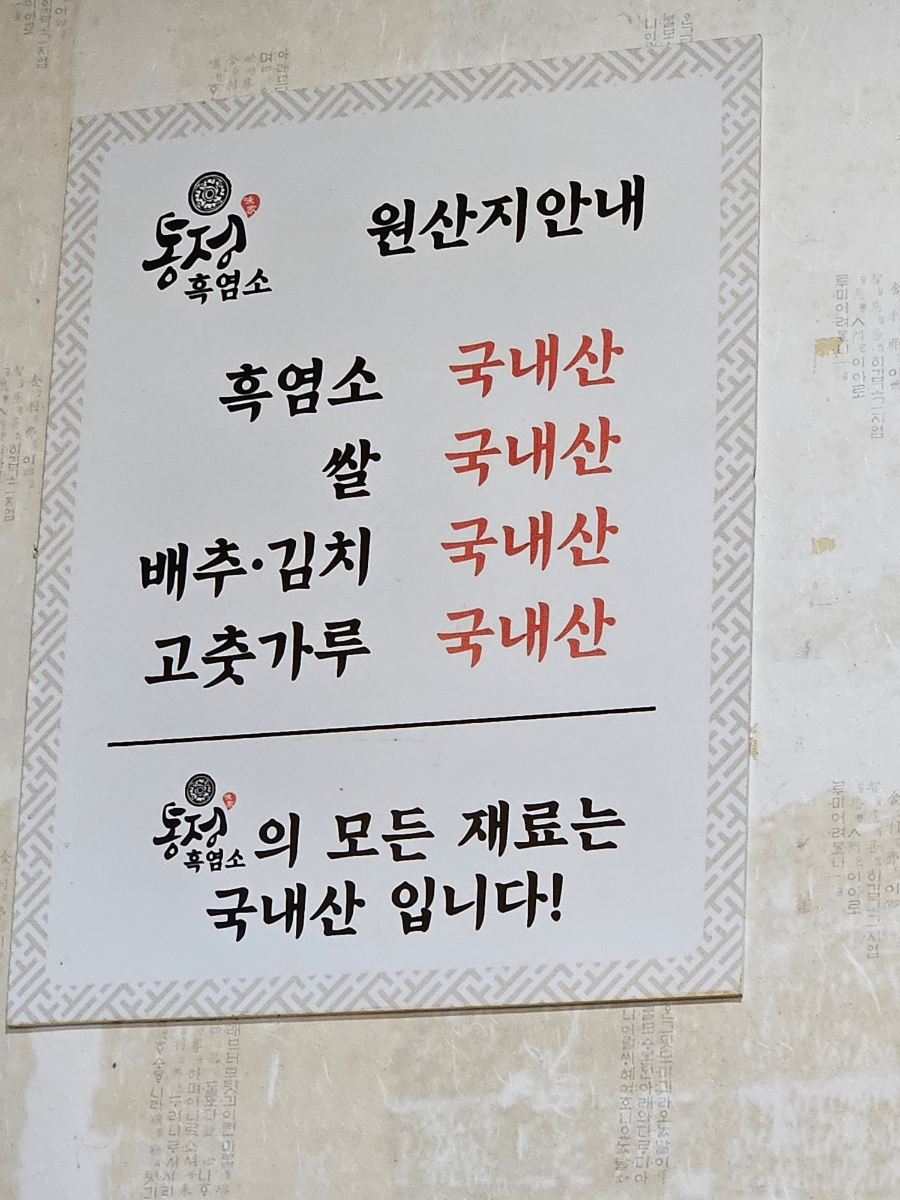 통정 味家
흑염소
원산지안내
흑염소 국내산
쌀 국내산
배추·김치 국내산
고춧가루 국내산
통정 흑염소의 모든 재료는
국내산 입니다!